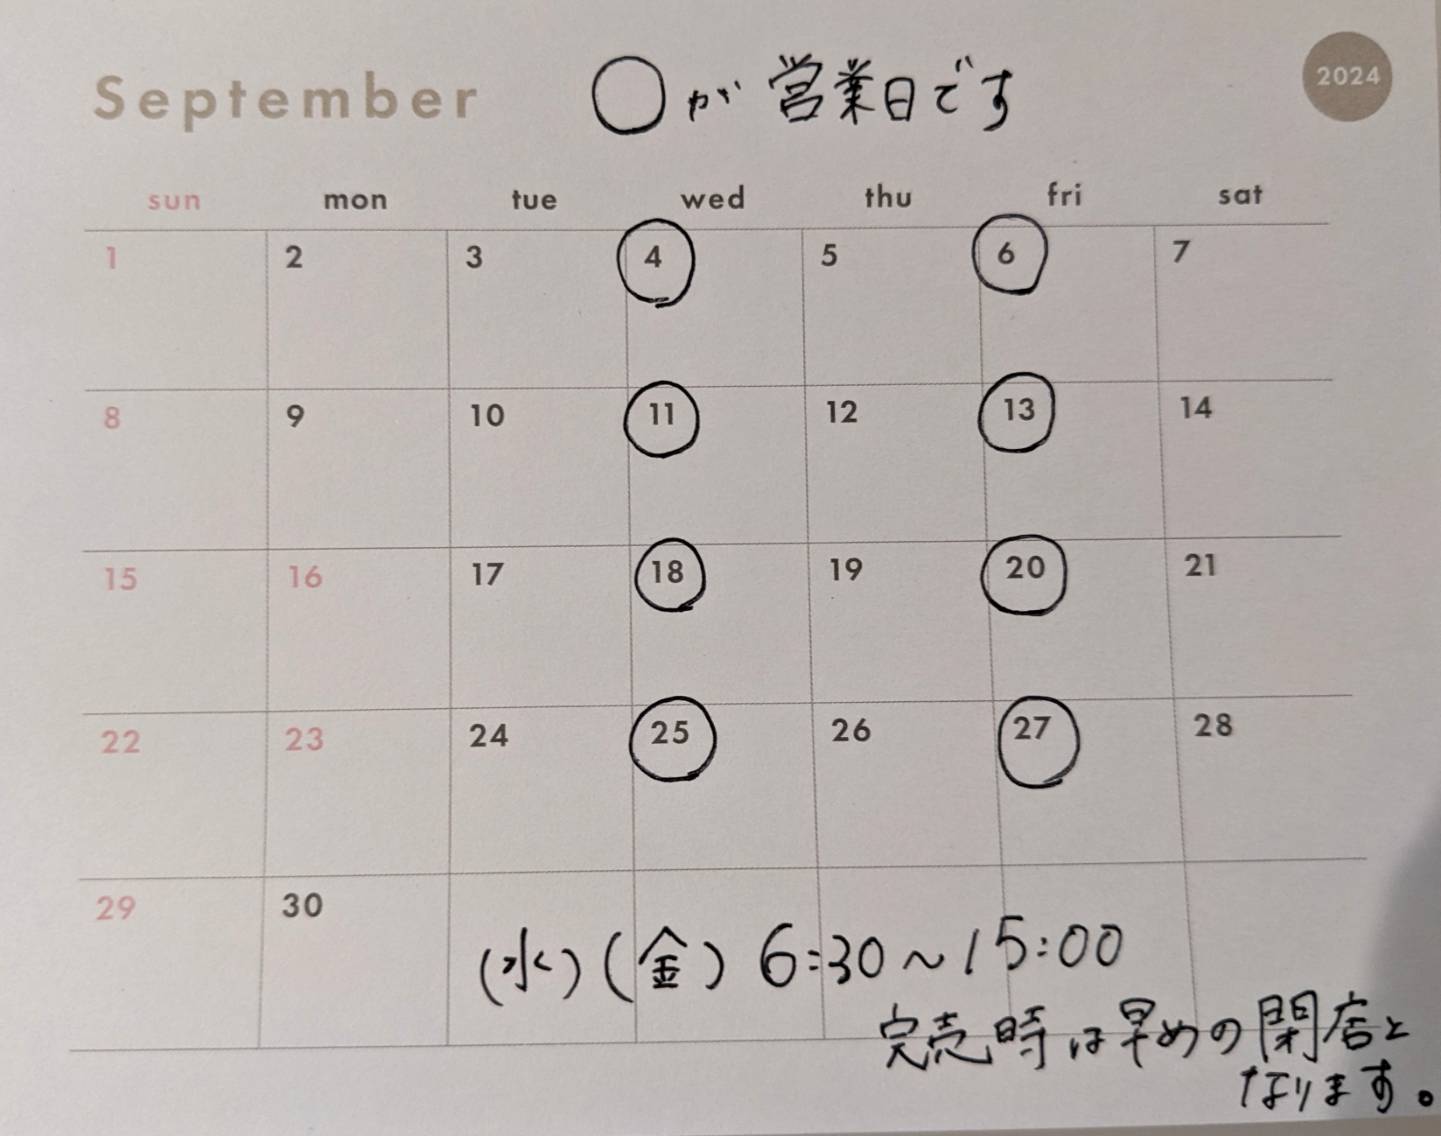 September ○が営業日です 2024
sun mon tue wed thu fri sat
1 2 3 4 5 6 7
8 9 10 11 12 13 14
15 16 17 18 19 20 21
22 23 24 25 26 27 28
29 30
(水)(金) 6:30~15:00
完売時は早めの閉店と
なります。